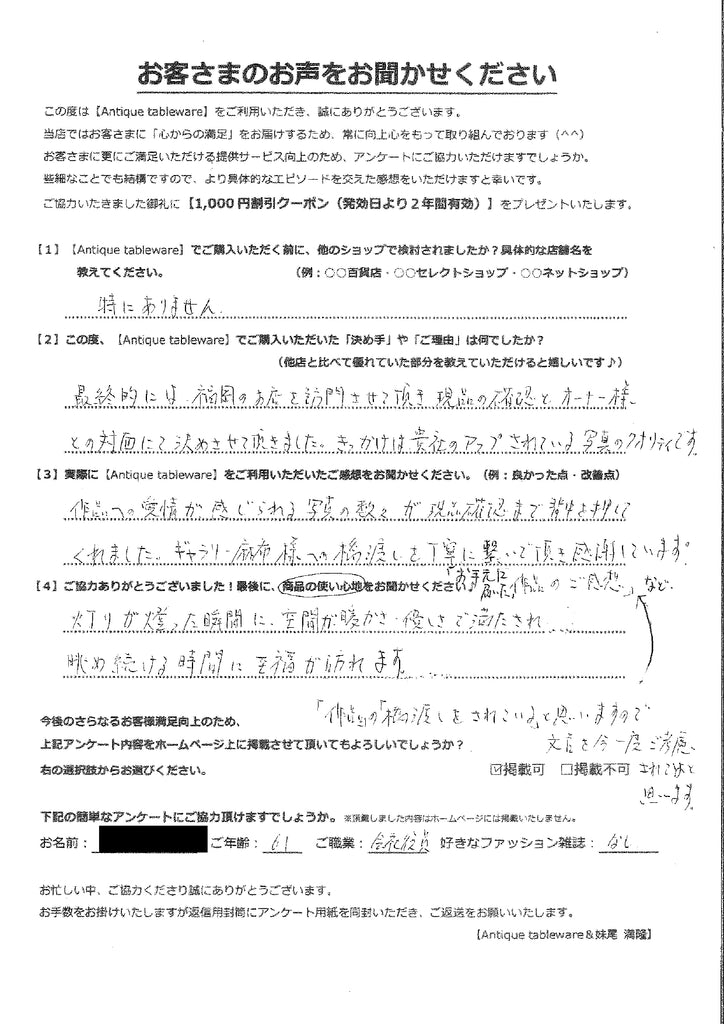 お客さまのお声をお聞かせください
この度は【Antique tableware】をご利用いただき、誠にありがとうございます。
当店ではお客さまに「心からの満足」をお届けするため、常に向上心をもって取り組んでおります（^^）
お客さまに更にご満足いただける提供サービス向上のため、アンケートにご協力いただけますでしょうか。
些細なことでも結構ですので、より具体的なエピソードを交えた感想をいただけますと幸いです。
ご協力いたきました御礼に【1,000円割引クーポン（発効日より２年間有効）】をプレゼントいたします。
【1】【Antique tableware】でご購入いただく前に、他のショップで検討されましたか？具体的な店舗名を
教えてください。 （例：○○百貨店・○○セレクトショップ・○○ネットショップ）
特にありません
【2】この度、【Antique tableware】でご購入いただいた「決め手」や「ご理由」は何でしたか？
（他店と比べて優れていた部分を教えていただけると嬉しいです♪）
最終的には、福岡のお店を訪問させて頂き現品の確認とオーナー様
との対面にて決めさせて頂きました。きっかけは貴社のアップされている写真のクオリティです
【3】実際に【Antique tableware】をご利用いただいたご感想をお聞かせください。（例：良かった点・改善点）
作品への愛情が感じられる写真の数々が現品確認まで背中を押して
くれました。ギャラリー麻布様への橋渡しを丁寧に繋いで頂き感謝しています。
【4】ご協力ありがとうございました！最後に、商品の使い心地をお聞かせください
「お手元に届いた作品のご感想」など
灯りが燈った瞬間に、空間が暖かさ・優しさで満たされ....
眺め続ける時間に至福が訪れます......
「作品の「橋渡しをされている」と思いますので
文言を今一度ご考慮
されてはと
思います
今後のさらなるお客様満足向上のため、
上記アンケート内容をホームページ上に掲載させて頂いてもよろしいでしょうか？
右の選択肢からお選びください。 ☑掲載可 □掲載不可
下記の簡単なアンケートにご協力頂けますでしょうか。※頂戴しました内容はホームページには掲載いたしません。
お名前： ご年齢：61 ご職業：会社役員 好きなファッション雑誌：なし
お忙しい中、ご協力くださり誠にありがとうございます。
お手数をお掛けいたしますが返信用封筒にアンケート用紙を同封いただき、ご返送をお願いいたします。
【Antique tableware＆妹尾 満隆】